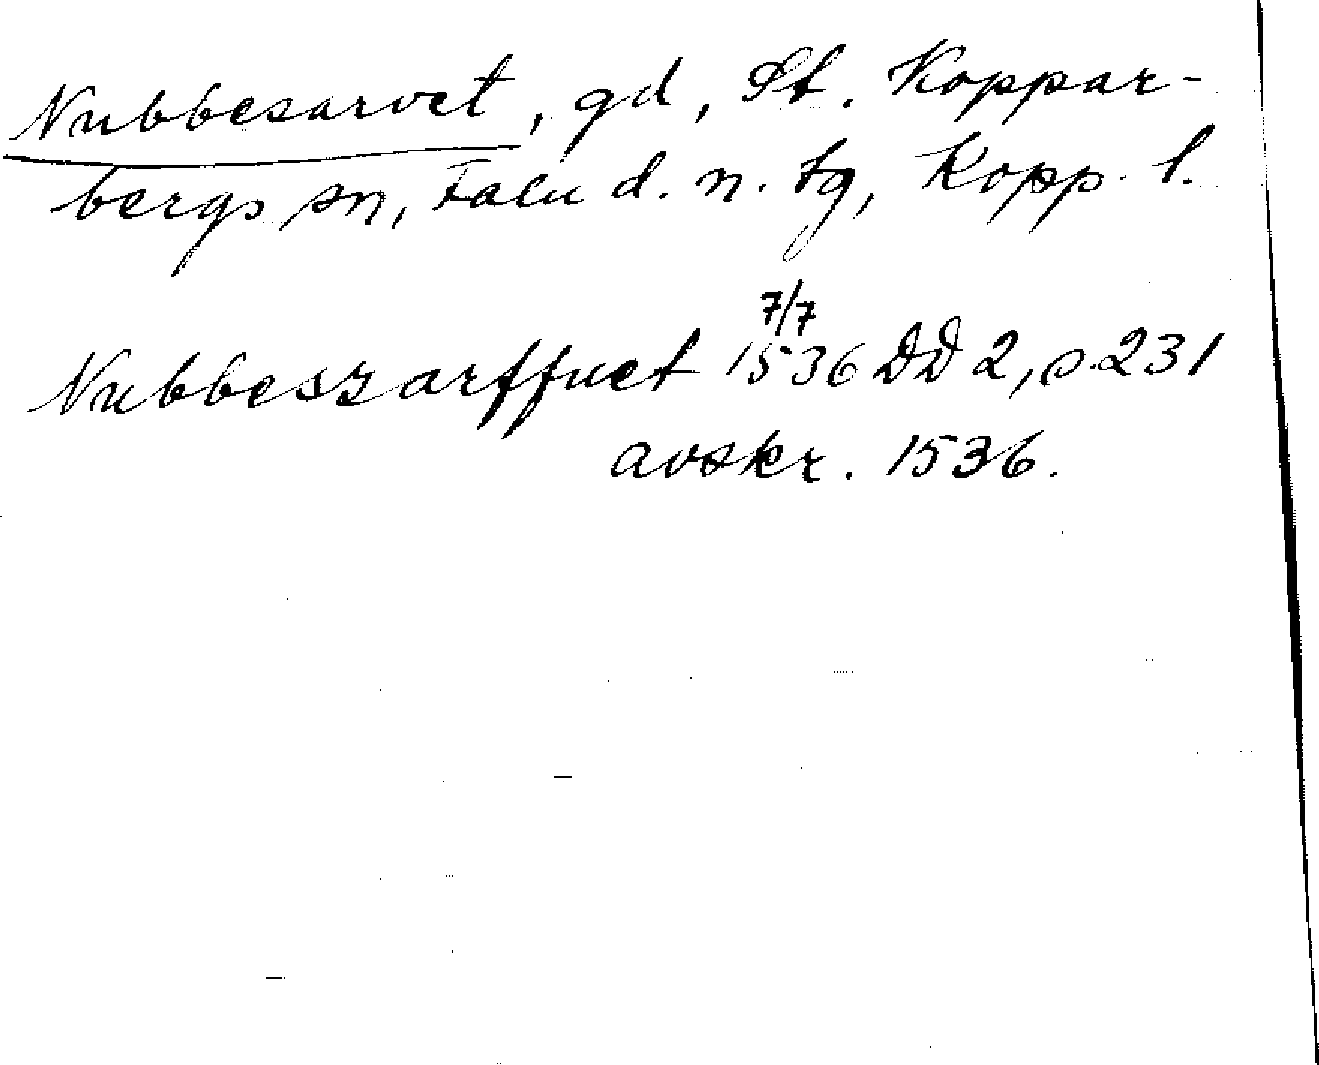 Nubbesarvet, gd, St. Koppar-
bergs sn, Falu d. n. tg, Kopp. l.
7/7
Nubbeszarffuet 1536 DD 2, s. 231
avskr. 1536.